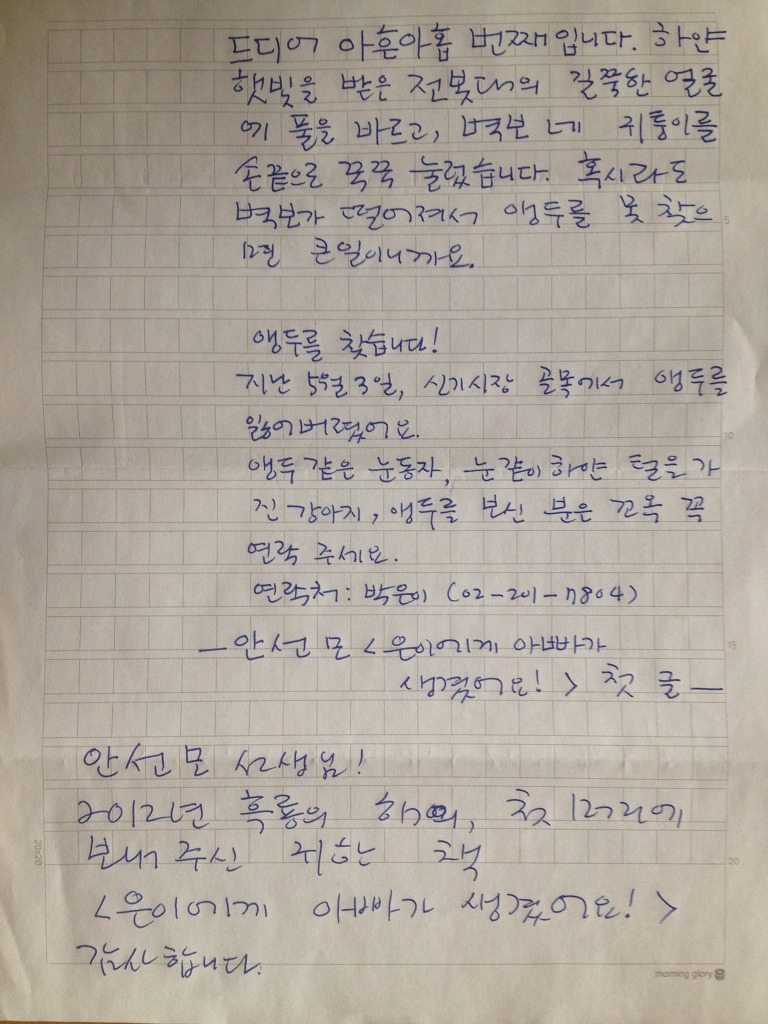 드디어 아흔아홉 번째입니다. 하얀
햇빛을 받은 전봇대의 길쭉한 얼굴
에 풀을 바르고, 벽보 네 귀퉁이를
손끝으로 꾹꾹 눌렀습니다. 혹시라도
벽보가 떨어져서 앵두를 못 찾으
면 큰일이니까요.
5
앵두를 찾습니다!
지난 5월 3일, 신기시장 골목에서 앵두를
잃어버렸어요.
10
앵두 같은 눈동자, 눈같이 하얀 털을 가
진 강아지, 앵두를 보신 분은 꼬옥 꼭
연락 주세요.
연락처: 박은이 (02-201-7804)
—안선모 <은이에게 아빠가
15
생겼어요!> 첫 글—
안선모 선생님!
2012년 흑룡의 해의, 첫 머리에
보내 주신 귀한 책
20
<은이에게 아빠가 생겼어요!>
감사합니다.
20x20
morning glory